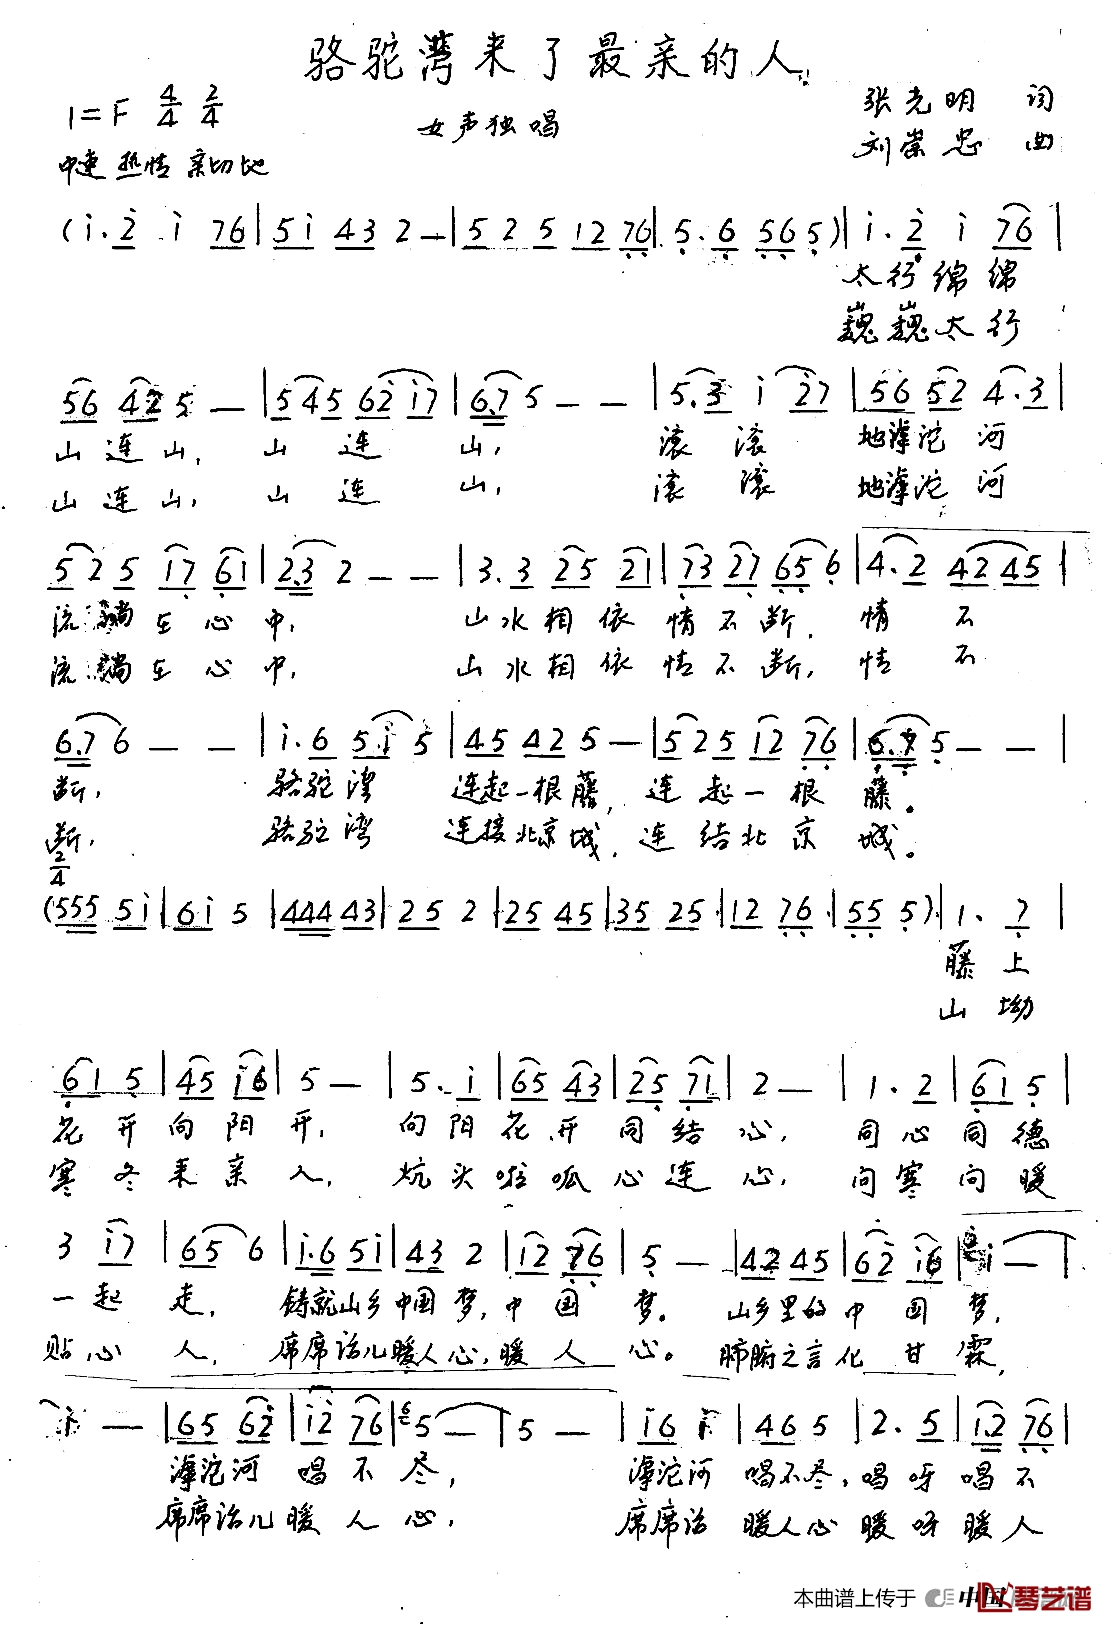 骆驼湾来了最亲的人
1=F 4/4 2/4
女声独唱
张光明 词
刘崇忠 曲
中速 热情 亲切地
(i. 2 i 76 | 5i 43 2 — | 5 2 5 12 76 | 5. 6 56 5) | i. 2 i 76 |
太行绵绵
巍巍太行
56 42 5 — | 545 62 i7 | 6.7 5 — — | 5.3 i 27 | 56 52 4.3 |
山连山, 山连山, 滚滚 地滹沱河
山连山, 山连山, 滚滚 地滹沱河
5 2 5 i7 61 | 2.3 2 — — | 3.3 25 21 | 73 27 65 6 | 4.2 4245 |
流淌在心中, 山水相依情不断, 情不
流淌在心中, 山水相依情不断, 情不
6.7 6 — — | i.6 5.i 5 | 45 42 5 — | 525 12 76 | 6.7 5 — — |
断, 骆驼湾 连起一根藤, 连起一根藤。
断, 骆驼湾 连接北京城, 连结北京城。
2/4
(555 5i | 6i 5 | 444 43 | 25 2 | 25 45 | 35 25 | 12 76 | 55 5) | 1. 7 |
藤上
山坳
61 5 | 45 i6 | 5 — | 5. i | 65 43 | 25 71 | 2 — | 1. 2 | 61 5 |
花开向阳开, 向阳花开同结心, 同心同德
寒冬来亲人, 炕头啦呱心连心, 问寒问暖
3 i7 | 65 6 | i.6 5i | 43 2 | i2 76 | 5 — | 42 45 | 62 i6 | i — |
一起走, 铸就山乡中国梦, 中国梦。 山乡里的中国梦,
贴心人, 席席话儿暖人心, 暖人心。 肺腑之言化甘霖,
i — | 65 6i | i2 76 | 5 — | 5 — | i6 i | 46 5 | 2. 5 | i.2 76 |
滹沱河唱不尽, 滹沱河唱不尽, 唱呀唱不
席席话儿暖人心, 席席话暖人心暖呀暖人
本曲谱上传于 中国 琴艺谱